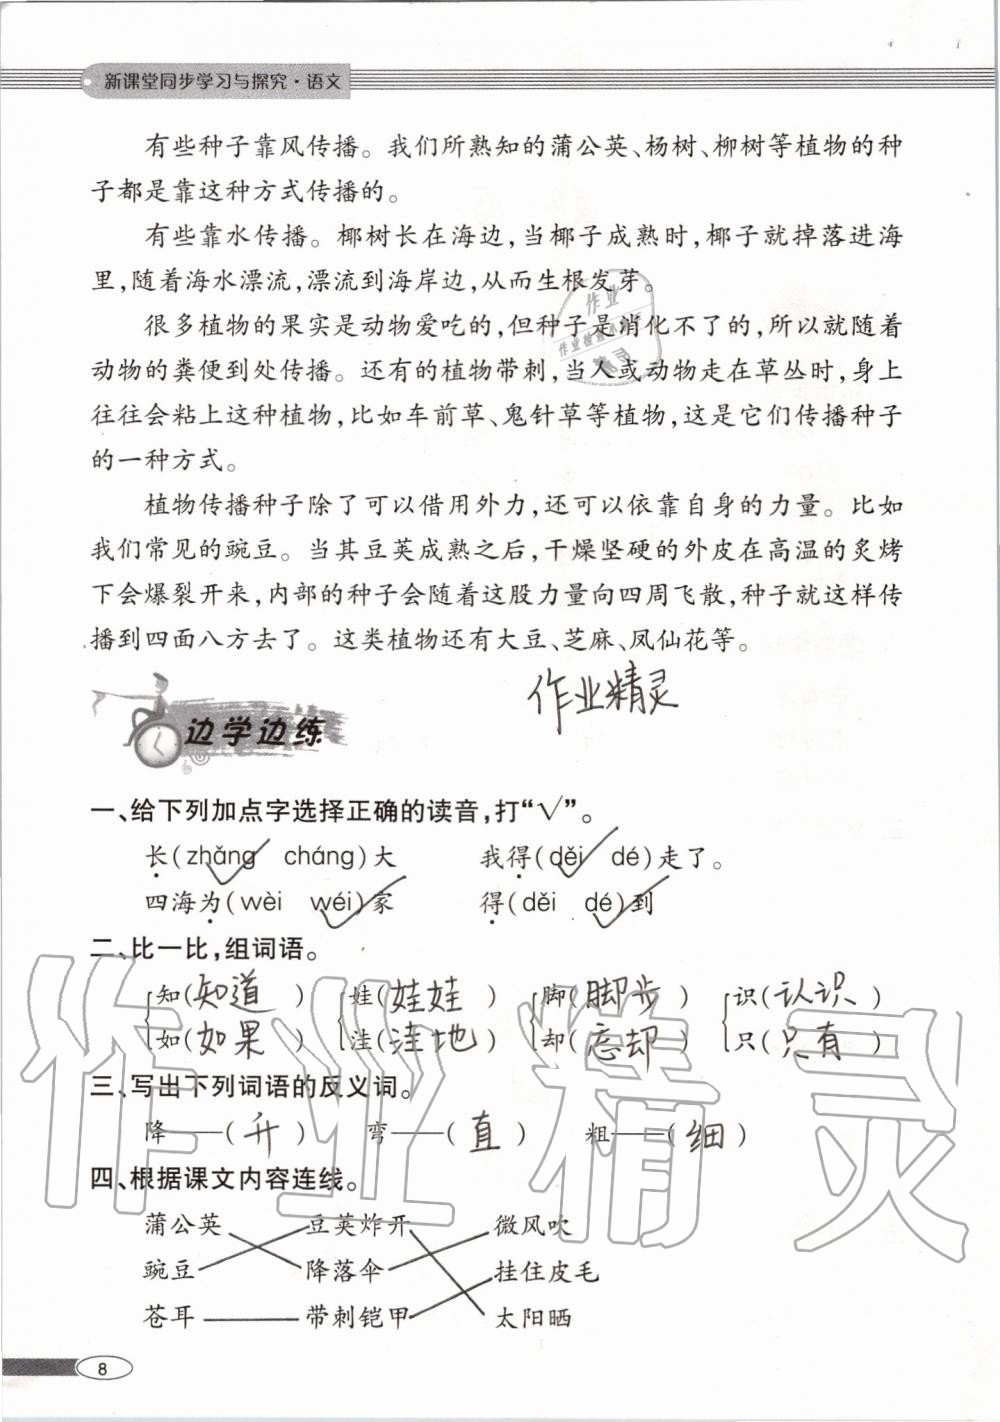 新课堂同步学习与探究·语文
有些种子靠风传播。我们所熟知的蒲公英、杨树、柳树等植物的种
子都是靠这种方式传播的。
有些靠水传播。椰树长在海边,当椰子成熟时,椰子就掉落进海
里,随着海水漂流,漂流到海岸边,从而生根发芽。
很多植物的果实是动物爱吃的,但种子是消化不了的,所以就随着
动物的粪便到处传播。还有的植物带刺,当人或动物走在草丛时,身上
往往会粘上这种植物,比如车前草、鬼针草等植物,这是它们传播种子
的一种方式。
植物传播种子除了可以借用外力,还可以依靠自身的力量。比如
我们常见的豌豆。当其豆荚成熟之后,干燥坚硬的外皮在高温的炙烤
下会爆裂开来,内部的种子会随着这股力量向四周飞散,种子就这样传
播到四面八方去了。这类植物还有大豆、芝麻、凤仙花等。
作业精灵
边学边练
一、给下列加点字选择正确的读音,打“√”。
长(zhǎng cháng)大 我得(děi dé)走了。
四海为(wèi wéi)家 得(děi dé)到
二、比一比,组词语。
知(知道) 娃(娃娃) 脚(脚步) 识(认识)
如(如果) 洼(洼地) 却(忘却) 只(只有)
三、写出下列词语的反义词。
降——(升) 弯——(直) 粗——(细)
四、根据课文内容连线。
蒲公英 豆荚炸开 微风吹
豌豆 降落伞 挂住皮毛
苍耳 带刺铠甲 太阳晒
8
作业精灵